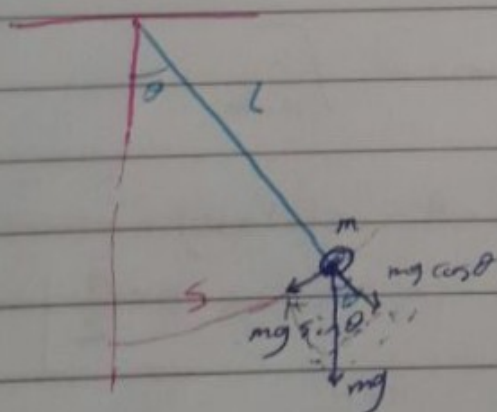 θ
L
m
mg cos θ
S
θ
mg sin θ
mg